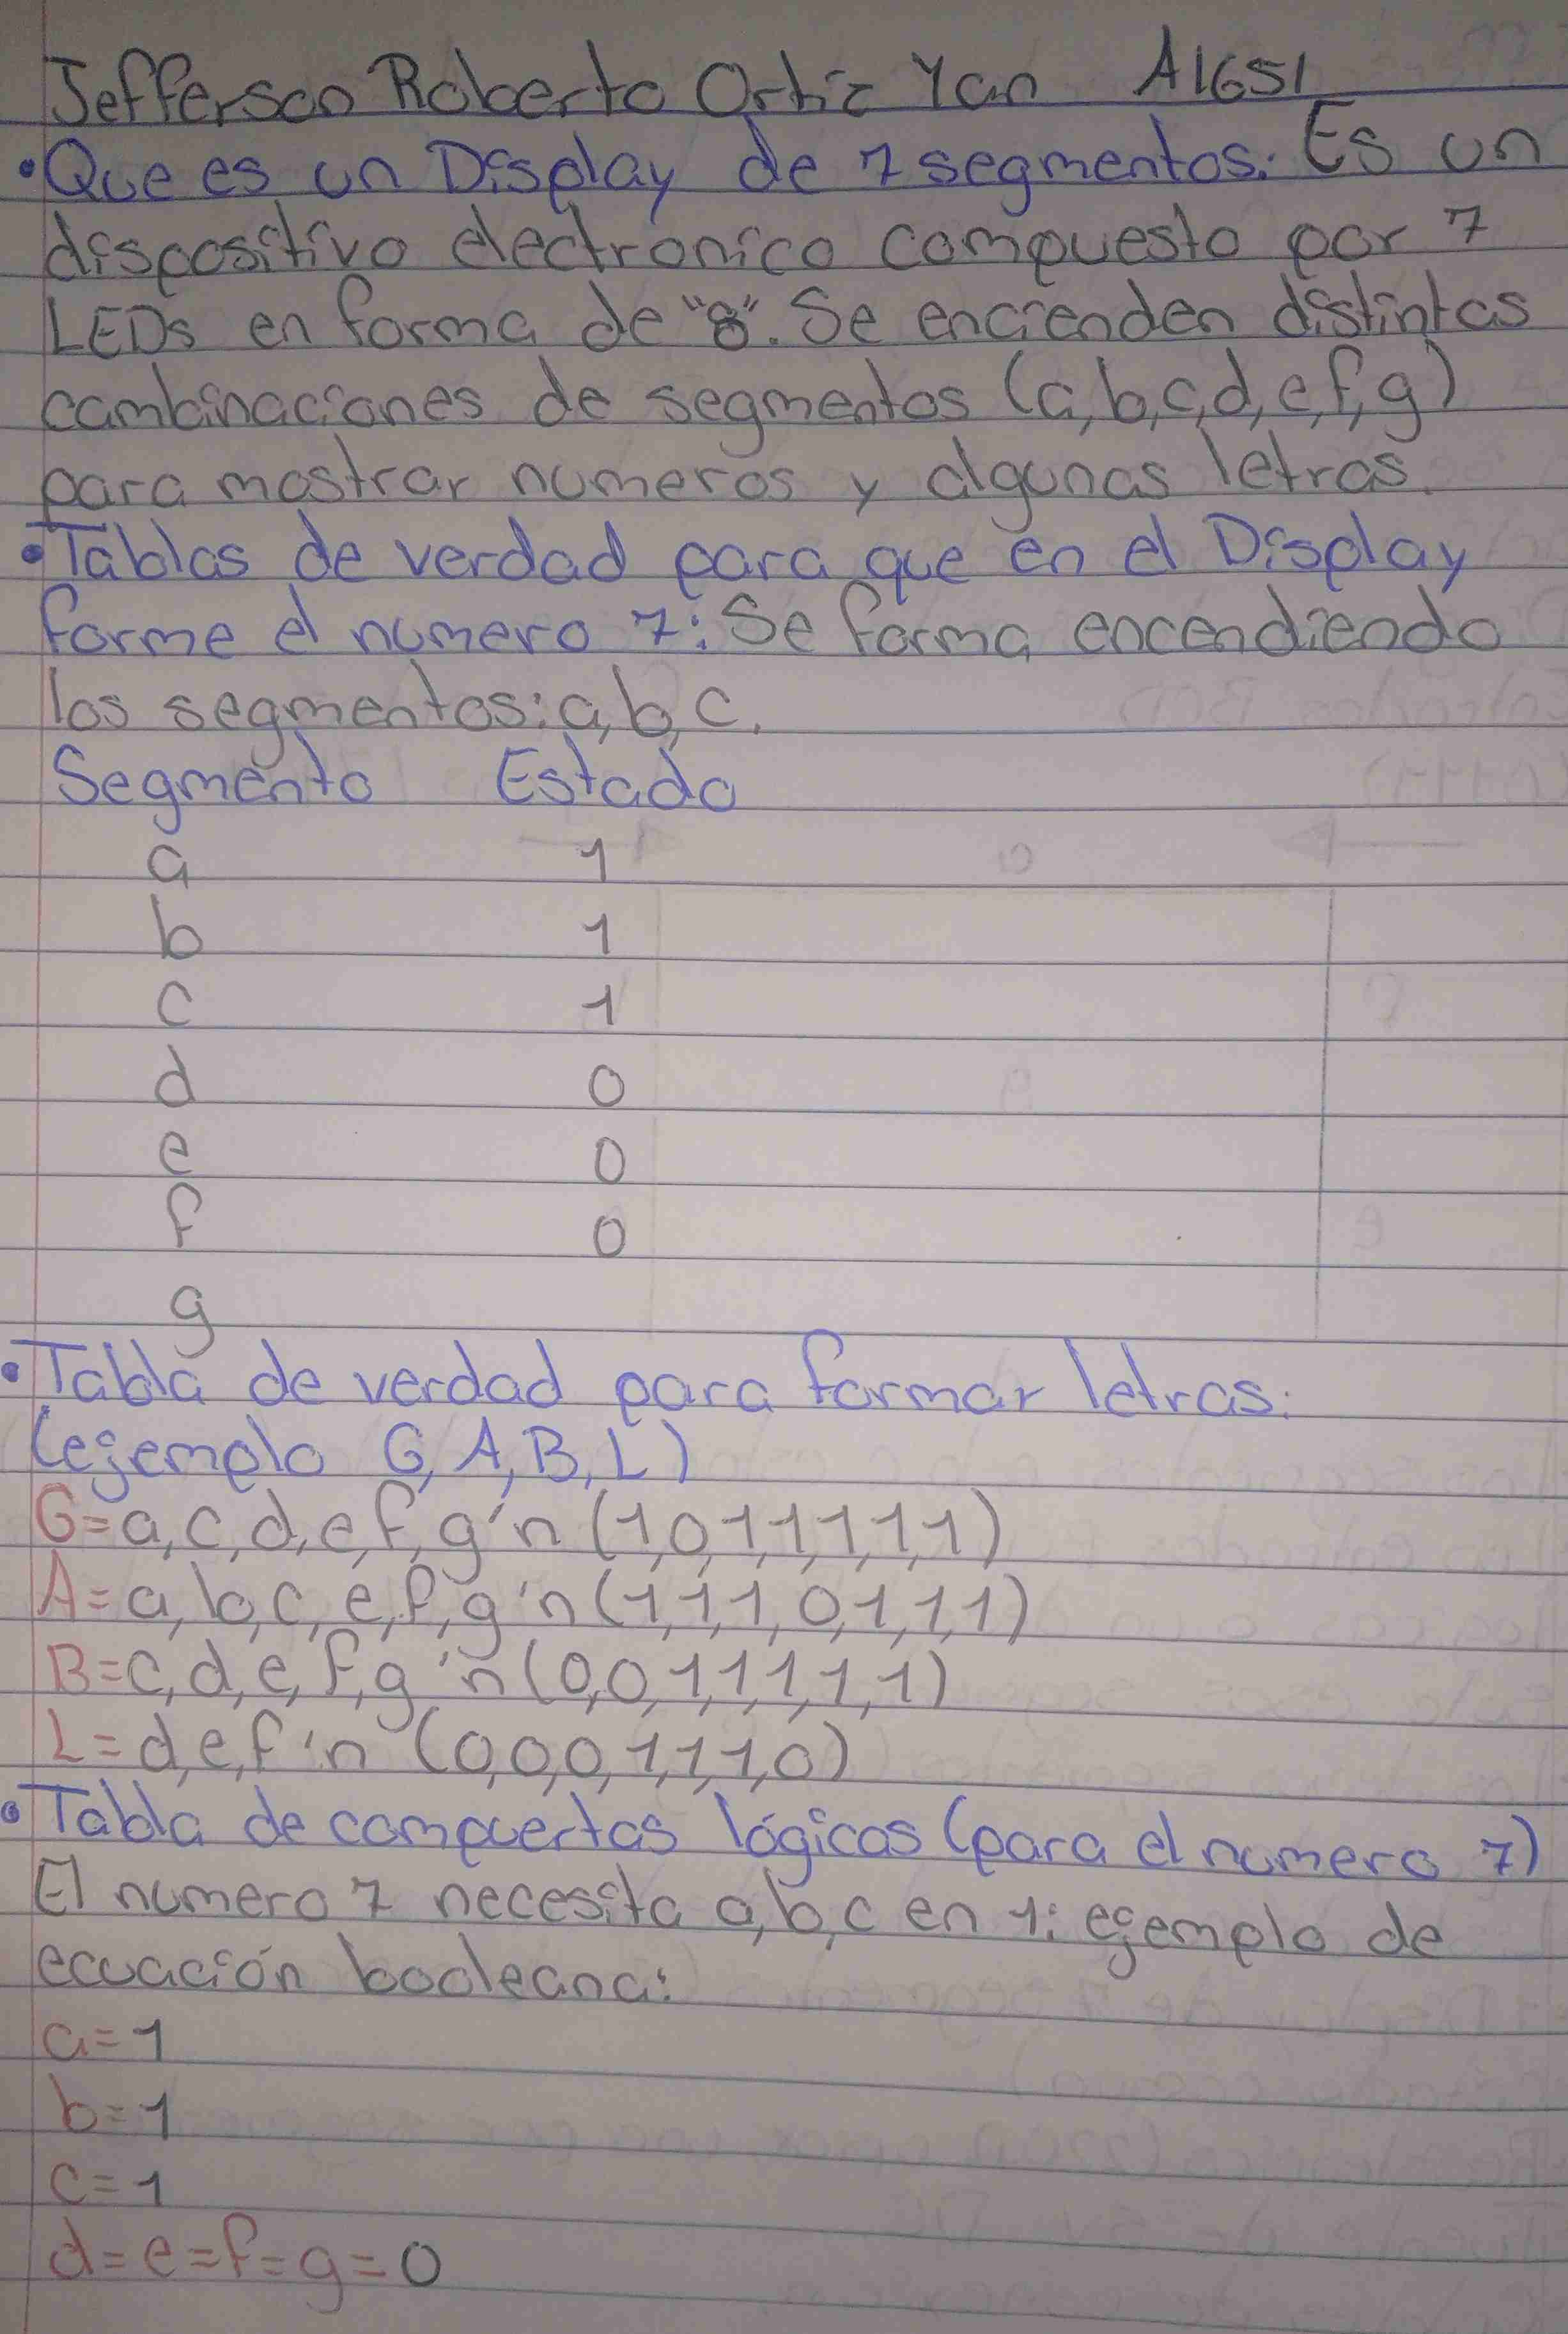 Jefferson Roberto Ortiz Yan A1651
• Que es un Display de 7 segmentos: Es un
dispositivo electronico compuesto por 7
LEDs en forma de "8". Se encienden distintas
combinaciones de segmentos (a,b,c,d,e,f,g)
para mostrar numeros y algunas letras.
• Tablas de verdad para que en el Display
forme el numero 7: Se forma encendiendo
los segmentos: a,b,c.
Segmento Estado
a 1
b 1
c 1
d 0
e 0
f 0
g
• Tabla de verdad para formar letras:
(ejemplo G, A, B, L)
G=a,c,d,e,f,g'n (1,0,1,1,1,1,1)
A=a,b,c,e,f,g'n (1,1,1,0,1,1,1)
B=c,d,e,f,g'n (0,0,1,1,1,1,1)
L=d,e,f'n (0,0,0,1,1,1,0)
• Tabla de compuertas lógicas (para el numero 7)
El numero 7 necesita a,b,c en 1: ejemplo de
ecuación booleana:
a=1
b=1
c=1
d=e=f=g=0